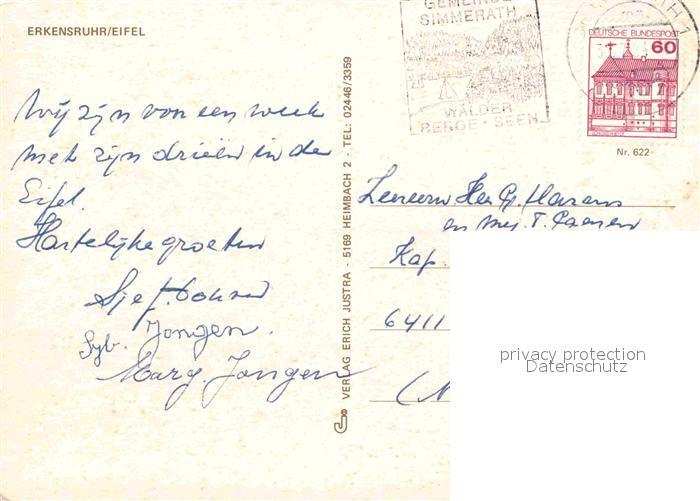 ERKENSRUHR/EIFEL
Wij zijn voor een week
met zijn drieën in de
Eifel.
Hartelijke groeten
Sjef
Jongen.
Marg. Jongen
VERLAG ERICH JUSTRA · 5169 HEIMBACH 2 · TEL: 02446/3359
GEMEINDE
SIMMERATH
WÄLDER
BERGE · SEEN
DEUTSCHE BUNDESPOST
60
Nr. 622
en Mej. T.
Kap.
6411
(N
privacy protection
Datenschutz